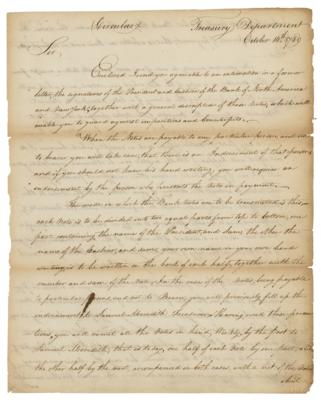 Circular Treasury Department
October 14th 1789
Sir,
Enclosed I send you agreeable to an intimation in a former
letter, the signatures of the President and Cashier of the Bank of North America
and New York, together with a general description of their Notes, which will
enable you to guard against impositions and Counterfeits.
When the Notes are payable to any particular person, and not
to bearer, you will take care, that there is an Indorsement of that person
and if you should not know his hand writing, you will require an
endorsement by the person who presents the Note in payment.
The mode in which the Bank Notes are to be transmitted is this,
each Note is to be divided into two equal parts from top to bottom, one
part containing the name of the President, and Sum, the other the
name of the Cashier, and upon your own name in your own hand
writing is to be written on the back of each half, together with the
number and sum of the Note. In the case of the Notes being payable
to particular persons, and not to Bearer, you will previously fill up the
endorsement Samuel Meredith Treasurer. Having used these precau
tions, you will remit all the Notes in hand, Weekly, by the post to
Samuel Meredith, that is to say, one half of each Note by one post, and
the other half by the next, accompanied in both cases, with a list of the